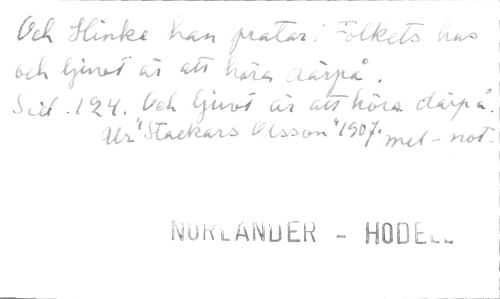 Och Hinke han pratar i Folkets hus
och ljuvt är att höra därpå.
Sid. 124. Och ljuvt är att höra därpå.
Ur "Stackars Olsson" 1907. mel-not.
NORLANDER - HODELL